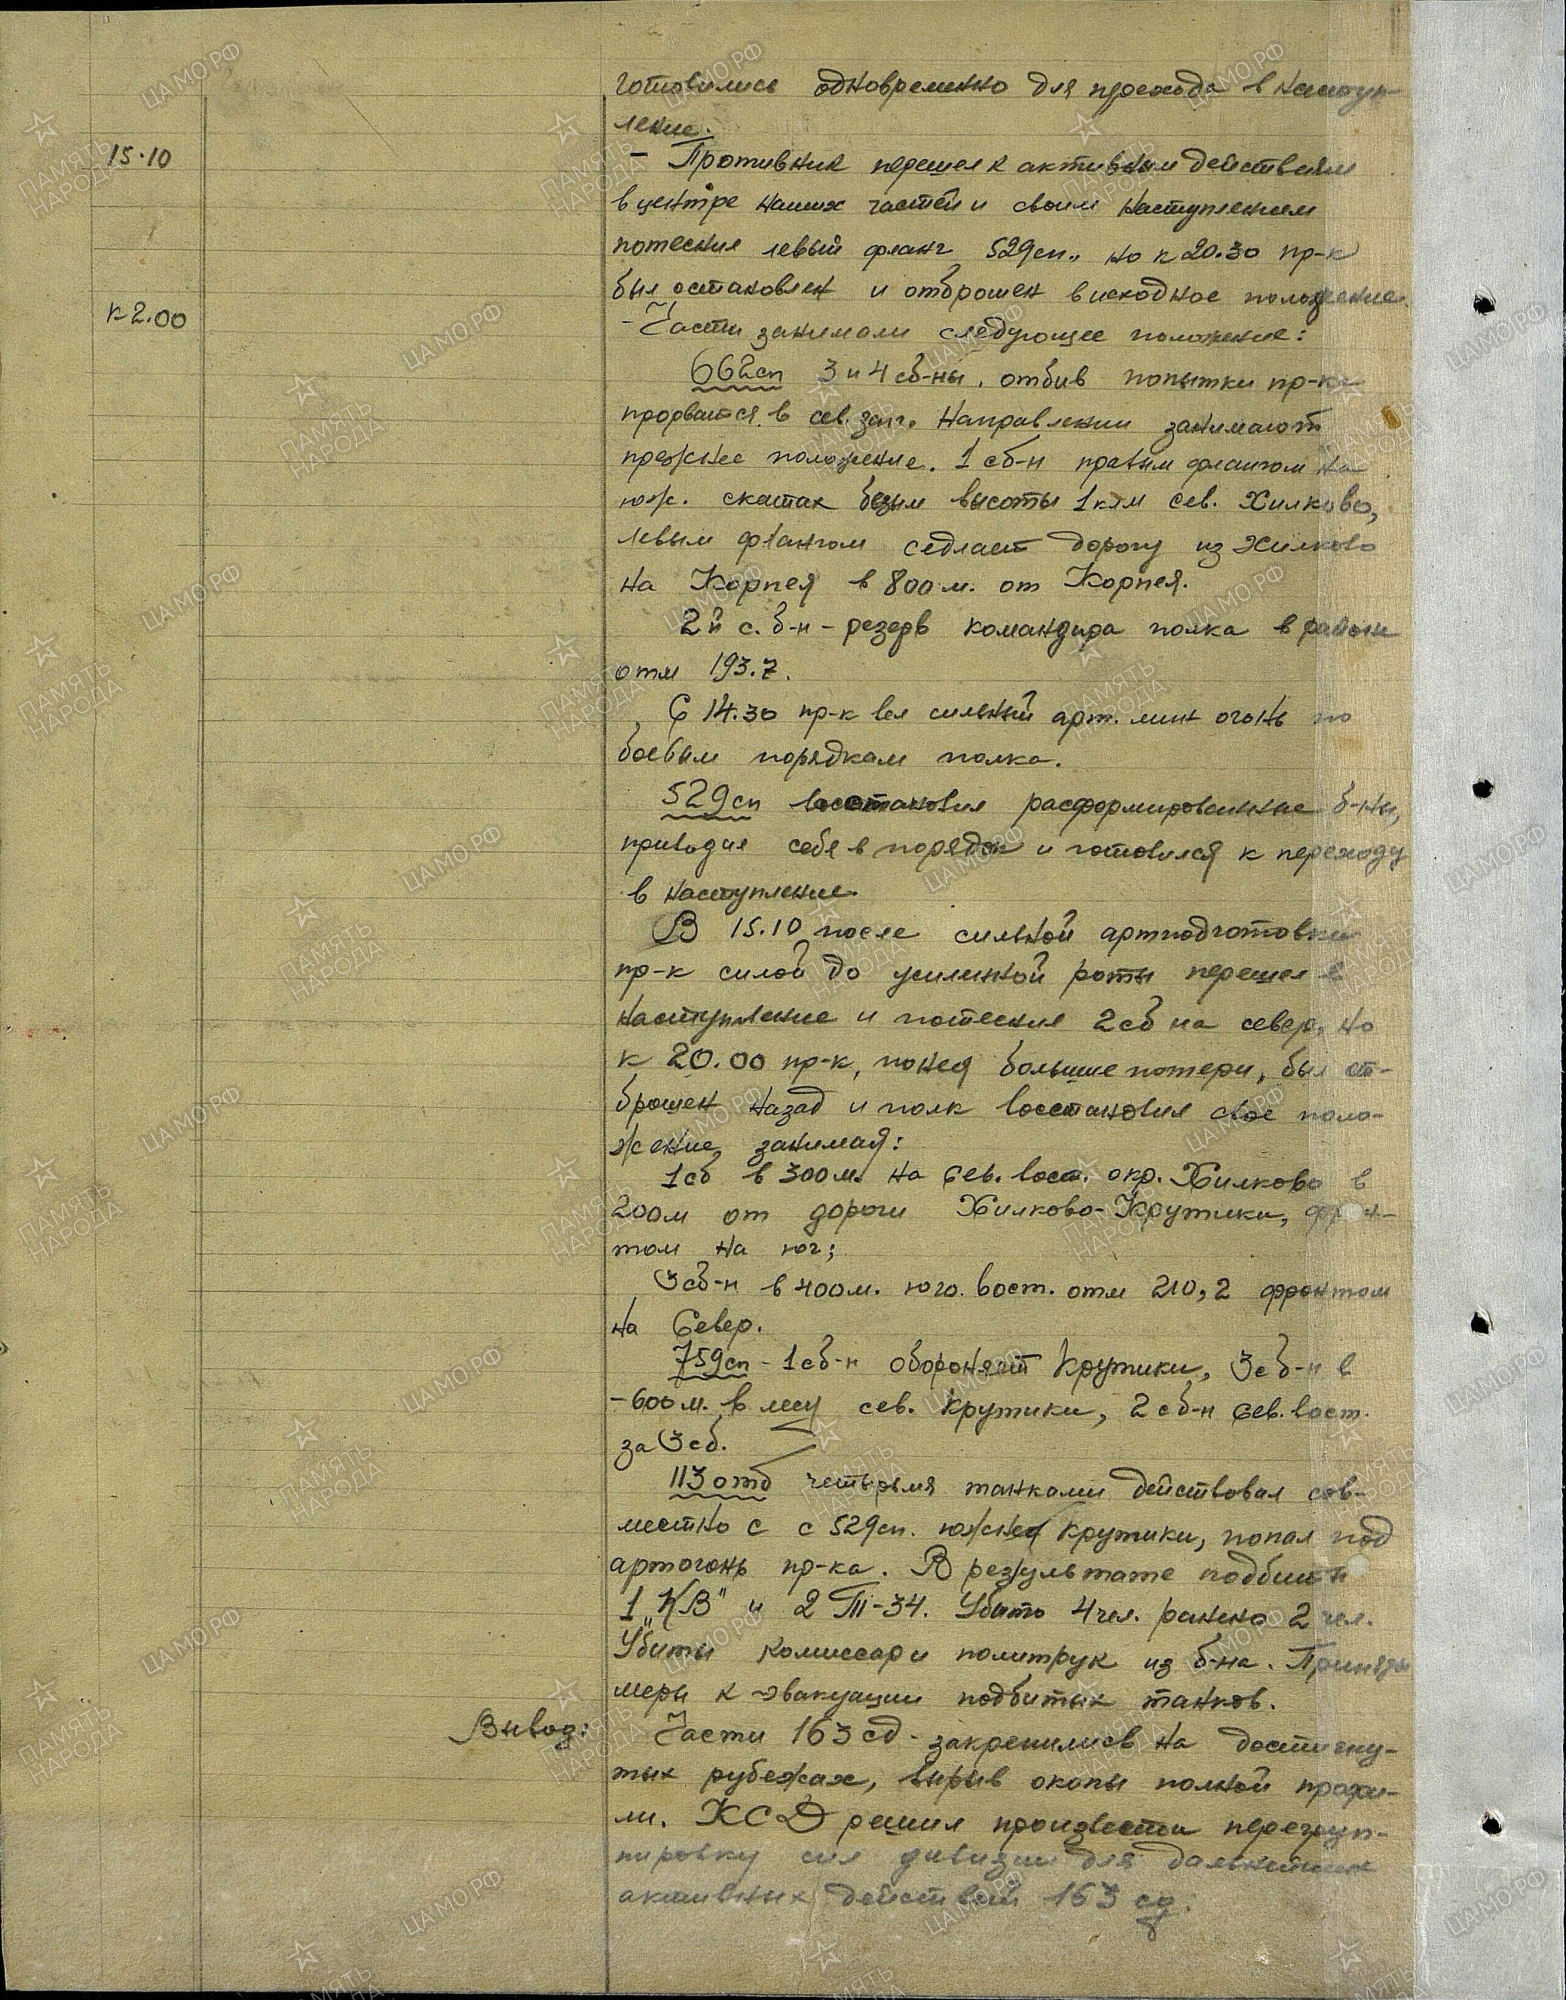 готовились одновременно для перехода в наступ-
ление.
15.10
- Противник перешел к активным действиям
в центре наших частей и своим наступлением
потеснил левый фланг 529сп., но к 20.30 пр-к
был остановлен и отброшен в исходное положение.
к 2.00
- Части занимали следующее положение:
662сп 3 и 4 сб-ны, отбив попытки пр-ка
прорваться в сев. зап. направлении занимают
прежнее положение. 1 сб-н правым флангом на
юж. скатах безым высоты 1 клм сев. Хилково,
левым флангом седлает дорогу из Хилково
на Корпея в 800 м. от Корпея.
2й с. б-н - резерв командира полка в районе
отм 193.7.
С 14.30 пр-к вел сильный арт. мин огонь по
боевым порядкам полка.
529сп восстановил расформированные б-ны,
приводил себя в порядок и готовился к переходу
в наступление.
В 15.10 после сильной артподготовки
пр-к силой до усиленной роты перешел в
наступление и потеснил 2сб на север, но
к 20.00 пр-к, понеся большие потери, был от-
брошен назад и полк восстановил свое поло-
жение, занимая:
1сб в 300м. на сев. вост. окр. Хилково в
200м от дороги Хилково-Крутики, фрон-
том на юг;
3сб-н в 400м. юго. вост. отм 210,2 фронтом
на Север.
759сп - 1сб-н обороняет Крутики, 3сб-н в
-600м. в лесу сев. Крутики, 2 сб-н сев. вост.
за 3сб.
113 отб четырьмя танками действовал сов-
местно с с 529сп. южнее Крутики, попал под
артогонь пр-ка. В результате подбиты
1 „КВ" и 2 Т-34. Убито 4 чел. ранено 2 чел.
Убиты комиссар и политрук из б-на. Приняты
меры к эвакуации подбитых танков.
Вывод:
Части 163 сд - закрепились на достигну-
тых рубежах, вырыв окопы полной профи-
ли. КСД решил произвести перегруп-
пировку сил дивизии для дальнейших
активных действий 163 сд.
ПАМЯТЬ НАРОДА
ЦАМО.РФ